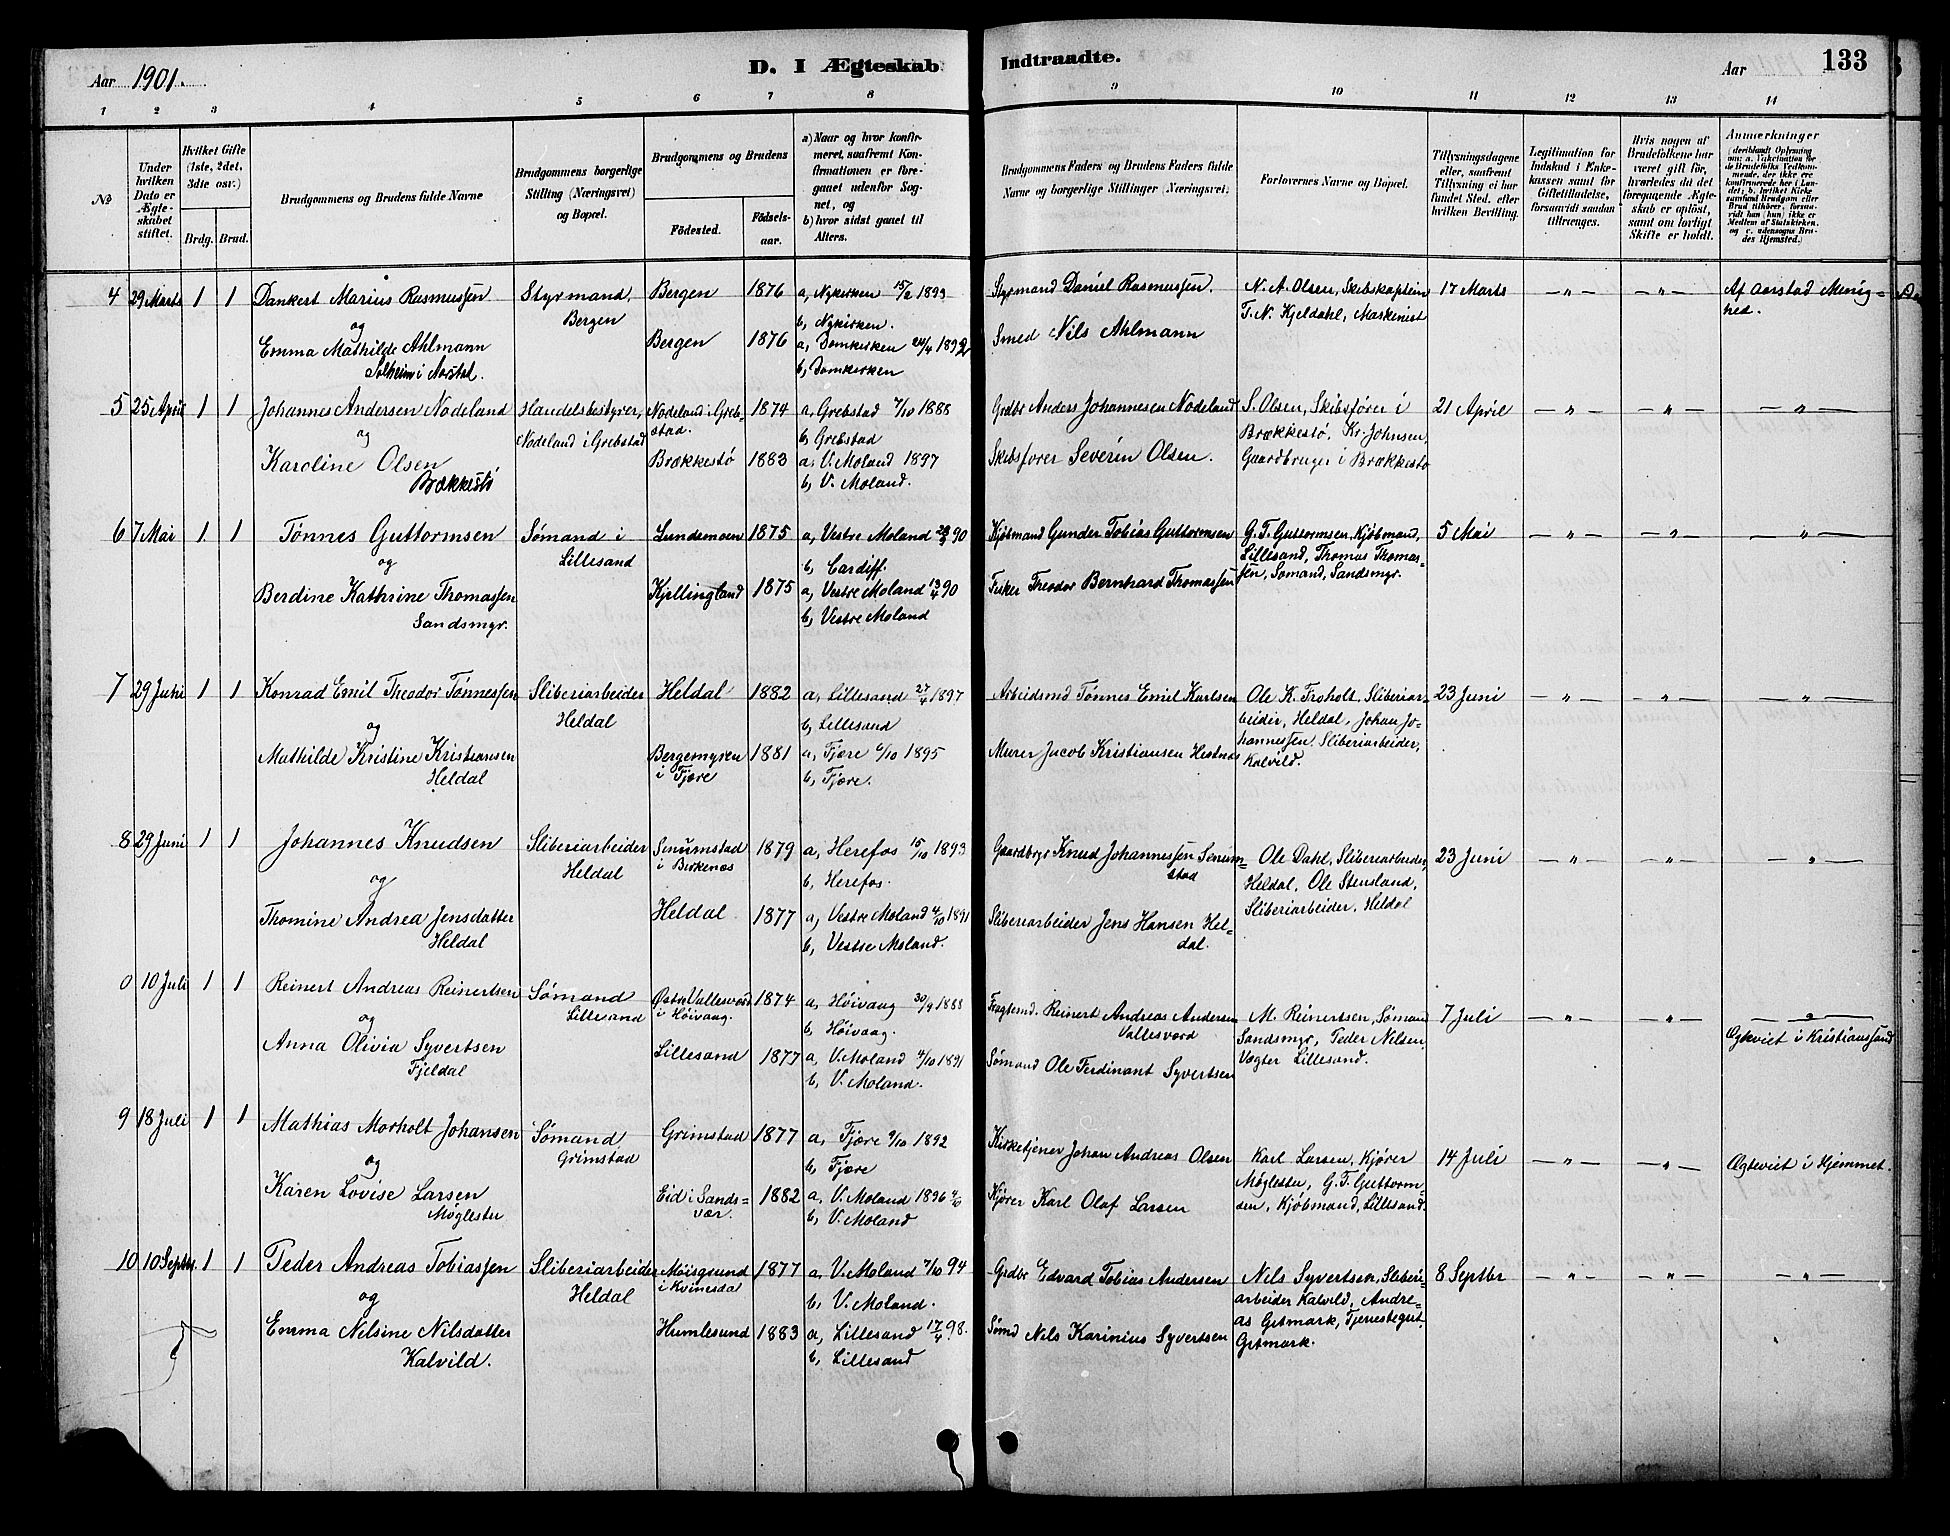 Aar 1901.
D. I Ægteskab
Indtraadte.
Aar
133
1 2 3 4 5 6 7 8 9 10 11 12 13 14
№
Under hvilken Dato er Ægteskabet stiftet.
Hvilket Gifte (1ste, 2det, 3dte osv.)
Brdg. Brud.
Brudgommens og Brudens fulde Navne
Brudgommens borgerlige Stilling (Næringsvei) og Bopæl.
Brudgommens og Brudens
Födested.
Födselsaar.
a) Naar og hvor konfirmeret, saafremt Konfirmationen er foregaaet udenfor Sognet, og
b) hvor sidst gaaet til Alters.
Brudgommens Faders og Brudens Faders fulde Navne og borgerlige Stillinger (Næringsvei).
Forlovernes Navne og Bopæl.
Tillysningsdagene eller, saafremt Tillysning ei har fundet Sted, efter hvilken Bevilling.
Legitimation for Indskud i Enkekassen samt for Giftetilladelse, forsaavidt saadan tiltrænges.
Hvis nogen af Brudefolkene har været gift för, hvorledes da det foregaaende Ægteskab er oplöst, samt om lovligt Skifte er holdt.
Anmærkninger
4 29 Marts 1 1 Dankert Marius Rasmussen Styrmand, Bergen Bergen 1876 a, Nykirken 15/2 1893 b, Nykirken. Styrmand Daniel Rasmussen. N. A. Olsen, Skibskaptein T. N. Kjeldahl, Maskenist 17 Marts — „ — — „ — Af Aarstad Menighed.
og
Emma Mathilde Ahlmann Solheim i Aarstad. Bergen 1876 a, Domkirken 24/4 1892 b, Domkirken Smed Nils Ahlmann
5 25 April 1 1 Johannes Andersen Nodeland Handelsbestyrer, Nodeland i Grebstad Nodeland i Grebstad. 1874 a, Grebstad 7/10 1888 b, Grebstad Grdbr Anders Johannesen Nodeland S. Olsen, Skibsfører i Brækkestø, Kr. Johnsen, Gaardbruger i Brækkestø 21 April — „ — — „ — — „ —
og
Karoline Olsen Brækkestø Brækkestø 1883 a, V. Moland 1897 b, V. Moland. Skibsfører Severin Olsen.
6 7 Mai 1 1 Tønnes Guttormsen Sømand i Lillesand Lundemoen 1875 a, Vestre Moland 90 b, Cardiff. Kjøbmand Gunder Tobias Guttormsen G. T. Guttormsen, Kjøbmand, Lillesand, Thomas Thomassen, Sømand, Sandsmyr. 5 Mai — „ — — „ — — „ —
og
Berdine Kathrine Thomassen Sandsmyr. Kjellingland 1875 a, Vestre Moland 13/4 90 b, Vestre Moland Fisker Theodor Bernhard Thomassen
7 29 Juni 1 1 Konrad Emil Theodor Tønnessen Sliberiarbeider Heldal Heldal 1882 a, Lillesand 27/4 1897 b, Lillesand Arbeidsmd Tønnes Emil Karlsen Ole K. Froholt, Sliberiarbeider, Heldal, Johan Johannessen, Sliberiarbeider, Kalvild. 23 Juni — „ — — „ — — „ —
og
Mathilde Kristine Kristiansen Heldal Bergemyren i Fjære 1881 a, Fjære 6/10 1895 b, Fjære. Murer Jacob Kristiansen Hestnes
8 29 Juni 1 1 Johannes Knudsen Sliberiarbeider Heldal Senumstad i Birkenes 1879 a, Herefos 15/10 1893 b, Herefos. Gaardbrgr Knud Johannessen Senumstad Ole Dahl, Sliberiarbeider, Heldal, Ole Stensland, Sliberiarbeider, Heldal 23 Juni — „ — — „ — — „ —
og
Thomine Andrea Jensdatter Heldal Heldal 1877 a, Vestre Moland 4/10 1891 b, Vestre Moland. Sliberiarbeider Jens Hansen Heldal.
0 10 Juli 1 1 Reinert Andreas Reinertsen Sømand Lillesand Østre Vallesverd i Høivaag. 1874 a, Høivaag 30/9 1888 b, Høivaag. Fragtemd. Reinert Andreas Andersen Vallesverd M. Reinertsen, Sømand Sandsmyr, Peder Nilsen, Vægter Lillesand. 7 Juli — „ — — „ — — „ — Ægteviet i Kristianssand
og
Anna Olivia Syvertsen Fjeldal Lillesand 1877 a, V. Moland 4/10 1891 b, V. Moland. Sømand Ole Ferdinant Syvertsen
9 18 Juli 1 1 Mathias Morholt Johansen Sømand Grimstad Grimstad 1877 a, Fjære 9/10 1892 b, Fjære Kirketjener Johan Andreas Olsen Karl Larsen, Kjører Møglestu, G. T. Guttormsen, Kjøbmand, Lillesand. 14 Juli — „ — — „ — Ægteviet i Hjemmet.
og
Karen Lovise Larsen Møglestu Eid i Sandsvær. 1882 a, V. Moland 1896 4/10 b, V. Moland Kjører Karl Olaf Larsen
10 10 Septbr. 1 1 Peder Andreas Tobiassen Sliberiarbeider Heldal Moisgrund i Kvinesdal 1877 a, V. Moland 7/10 94 b, V. Moland. Grdbr Edvard Tobias Andersen Nels Syvertsen, Sliberiarbeider Kalvild, Andreas Gitmark, Tjenestegut, Gitmark. 8 Septbr — „ — — „ — — „ —
og
Emma Nelsine Nilsdatter Kalvild. Humlesund 1883 a, Lillesand 17/4 98. b, Lillesand Sømd Nils Karinius Syvertsen